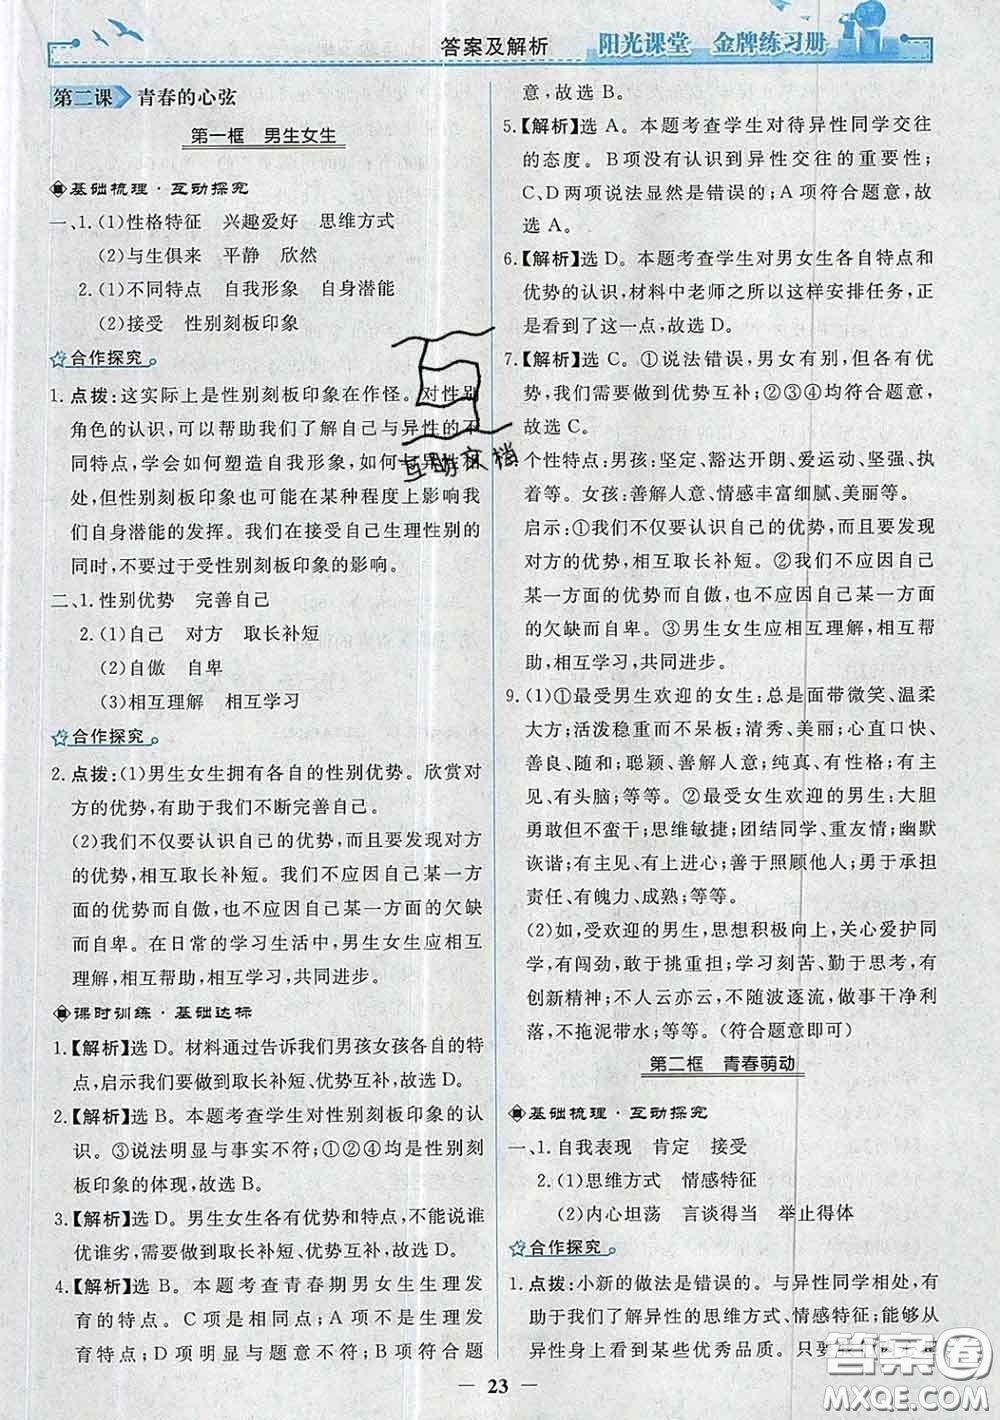 答案及解析
阳光课堂 金牌练习册
第二课 青春的心弦
第一框 男生女生
基础梳理·互动探究
一、1.(1)性格特征 兴趣爱好 思维方式
(2)与生俱来 平静 欣然
2.(1)不同特点 自我形象 自身潜能
(2)接受 性别刻板印象
合作探究
1.点拨:这实际上是性别刻板印象在作怪。对性别
角色的认识,可以帮助我们了解自己与异性的不
同特点,学会如何塑造自我形象,如何与异性相
处,但性别刻板印象也可能在某种程度上影响我
们自身潜能的发挥。我们在接受自己生理性别的
同时,不要过于受性别刻板印象的影响。
二、1.性别优势 完善自己
2.(1)自己 对方 取长补短
(2)自傲 自卑
(3)相互理解 相互学习
合作探究
2.点拨:(1)男生女生拥有各自的性别优势。欣赏对
方的优势,有助于我们不断完善自己。
(2)我们不仅要认识自己的优势,而且要发现对方
的优势,相互取长补短。我们不应因自己某一方
面的优势而自傲,也不应因自己某一方面的欠缺
而自卑。在日常的学习生活中,男生女生应相互
理解,相互帮助,相互学习,共同进步。
课时训练·基础达标
1.【解析】选D。材料通过告诉我们男孩女孩各自的特
点,启示我们要做到取长补短、优势互补,故选D。
2.【解析】选B。本题考查学生对性别刻板印象的认
识。③说法明显与事实不符;①②④均是性别刻
板印象的体现,故选B。
3.【解析】选D。男生女生各有优势和特点,不能说谁
优谁劣,需要做到取长补短、优势互补,故选D。
4.【解析】选B。本题考查青春期男女生生理发
育的特点。C项是相同点;A项不是生理发
育的特点;D项明显与题意不符;B项符合题
意,故选B。
5.【解析】选A。本题考查学生对待异性同学交往
的态度。B项没有认识到异性交往的重要性;
C、D两项说法显然是错误的;A项符合题意,故
选A。
6.【解析】选D。本题考查学生对男女生各自特点和
优势的认识,材料中老师之所以这样安排任务,正
是看到了这一点,故选D。
7.【解析】选C。①说法错误,男女有别,但各有优
势,我们需要做到优势互补;②③④均符合题意,
故选C。
个性特点:男孩:坚定、豁达开朗、爱运动、坚强、执
着等。女孩:善解人意、情感丰富细腻、美丽等。
启示:①我们不仅要认识自己的优势,而且要发现
对方的优势,相互取长补短。②我们不应因自己
某一方面的优势而自傲,也不应因自己某一方面
的欠缺而自卑。③男生女生应相互理解,相互帮
助,相互学习,共同进步。
9.(1)①最受男生欢迎的女生:总是面带微笑、温柔
大方;活泼稳重而不呆板;清秀、美丽;心直口快、
善良、随和;聪颖、善解人意;纯真、有性格;有主
见、有头脑;等等。②最受女生欢迎的男生:大胆
勇敢但不蛮干;思维敏捷;团结同学、重友情;幽默
诙谐;有主见、有上进心;善于照顾他人;勇于承担
责任、有魄力、成熟;等等。
(2)如,受欢迎的男生,思想积极向上,关心爱护同
学,有闯劲,敢于挑重担;学习刻苦,勤于思考,有
创新精神;不人云亦云,有主见;做事干净利
落,不拖泥带水;等等。(符合题意即可)
第二框 青春萌动
基础梳理·互动探究
一、1.自我表现 肯定 接受
2.(1)思维方式 情感特征
(2)内心坦荡 言谈得当 举止得体
合作探究
1.点拨:小新的做法是错误的。与异性同学相处,有
助于我们了解异性的思维方式、情感特征;能够从
异性身上看到某些优秀品质。只要
23
互助文档
答案圈
MXQE.COM